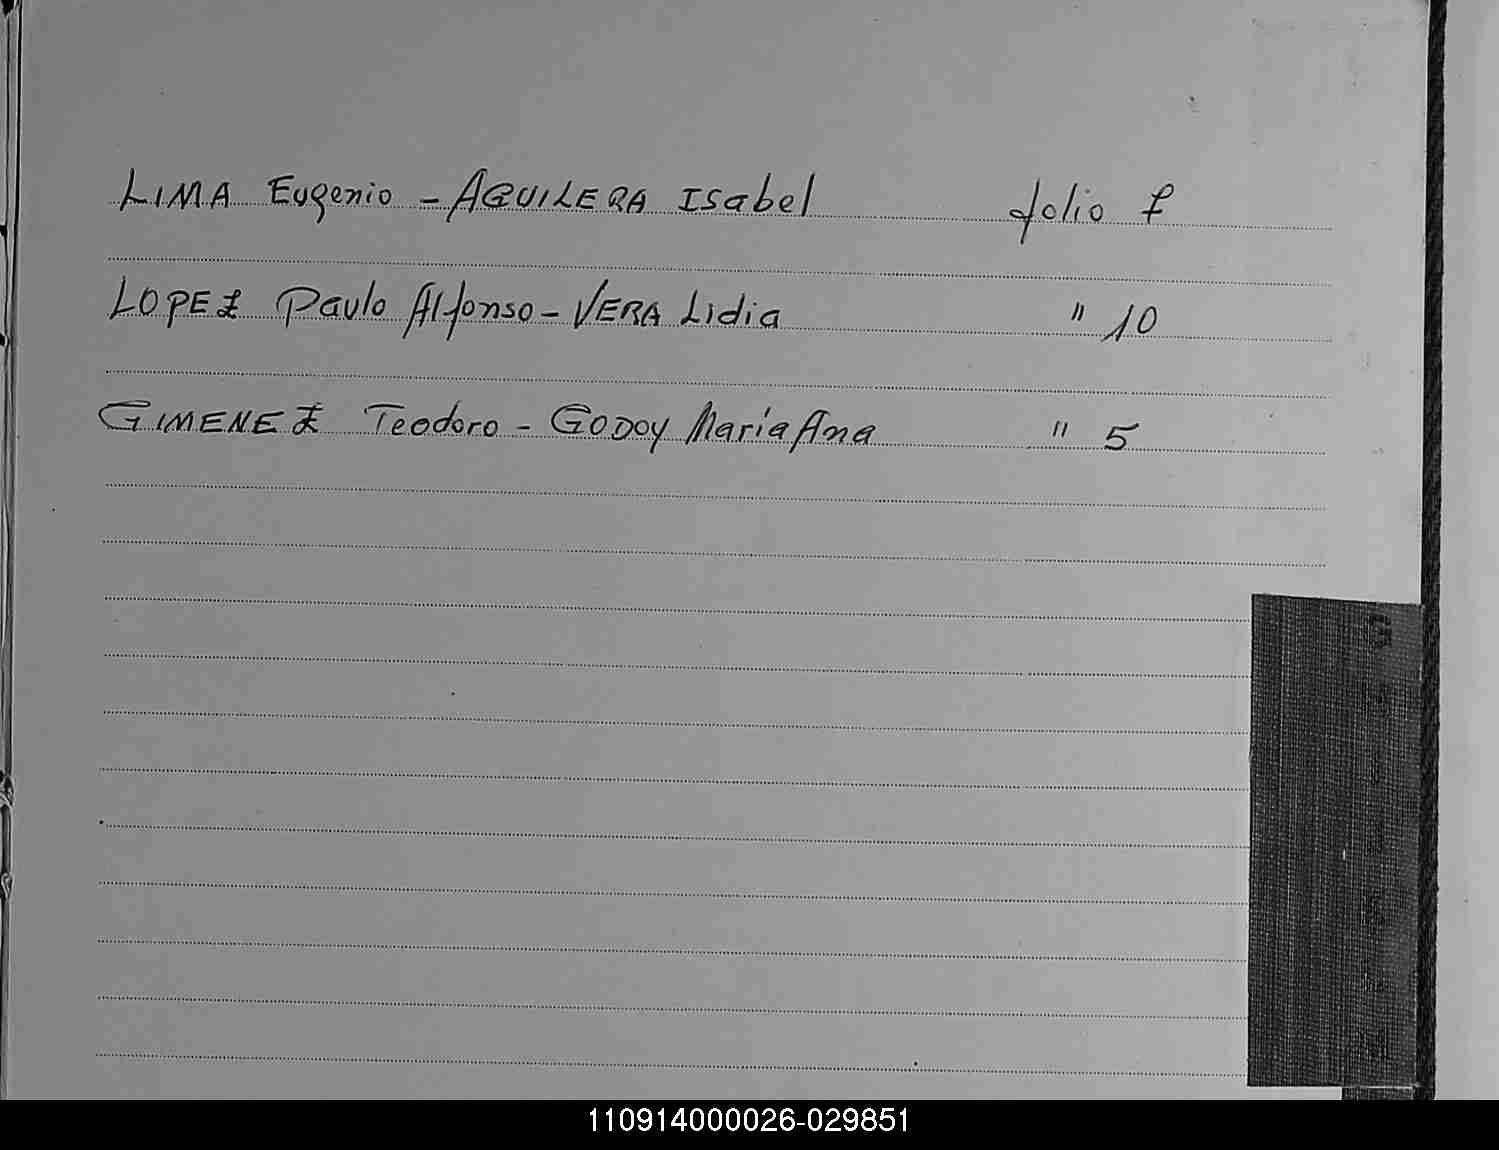 LIMA Eugenio - AGUILERA Isabel folio 7
LOPEZ Paulo Alfonso - VERA Lidia " 10
GIMENEZ Teodoro - GODOY María Ana " 5
110914000026-029851